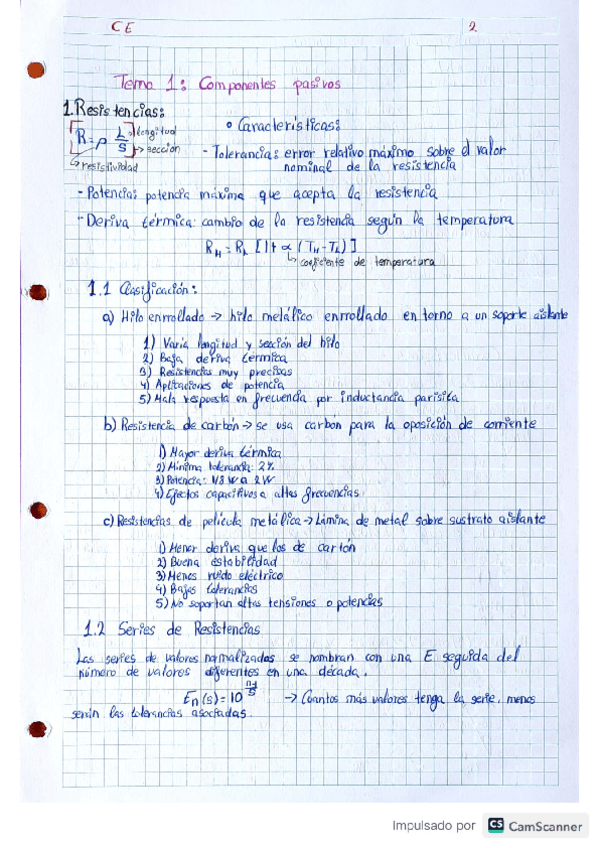 CE 2
Tema 1: Componentes pasivos
1. Resistencias:
R = ρ L/S → longitud → sección
↳ resistividad
• Características:
- Tolerancia: error relativo máximo sobre el valor
nominal de la resistencia
- Potencia: potencia máxima que acepta la resistencia
- Deriva térmica: cambio de la resistencia según la temperatura
R_H = R_L [1 + α (T_H - T_L)]
↳ coeficiente de temperatura
1.1 Clasificación:
a) Hilo enrrollado → hilo metálico enrrollado en torno a un soporte aislante
1) Varía longitud y sección del hilo
2) Baja deriva térmica
3) Resistencias muy precisas
4) Aplicaciones de potencia
5) Mala respuesta en frecuencia por inductancia parisita
b) Resistencia de carbón → se usa carbón para la oposición de corriente
1) Mayor deriva térmica
2) Mínima tolerancia: 2%
3) Potencia: 1/8 W a 2W
4) Efectos capacitivos a altas frecuencias
c) Resistencias de película metálica → Lámina de metal sobre sustrato aislante
1) Menor deriva que los de cartón
2) Buena estabilidad
3) Menos ruido eléctrico
4) Bajas tolerancias
5) No soportan altas tensiones o potencias
1.2 Series de Resistencias
Las series de valores normalizados se nombran con una E seguida del
número de valores diferentes en una década.
En(s) = 10^(n-1/s) → Cuantos más valores tenga la serie, menos
serán las tolerancias asociadas.
Impulsado por CS CamScanner